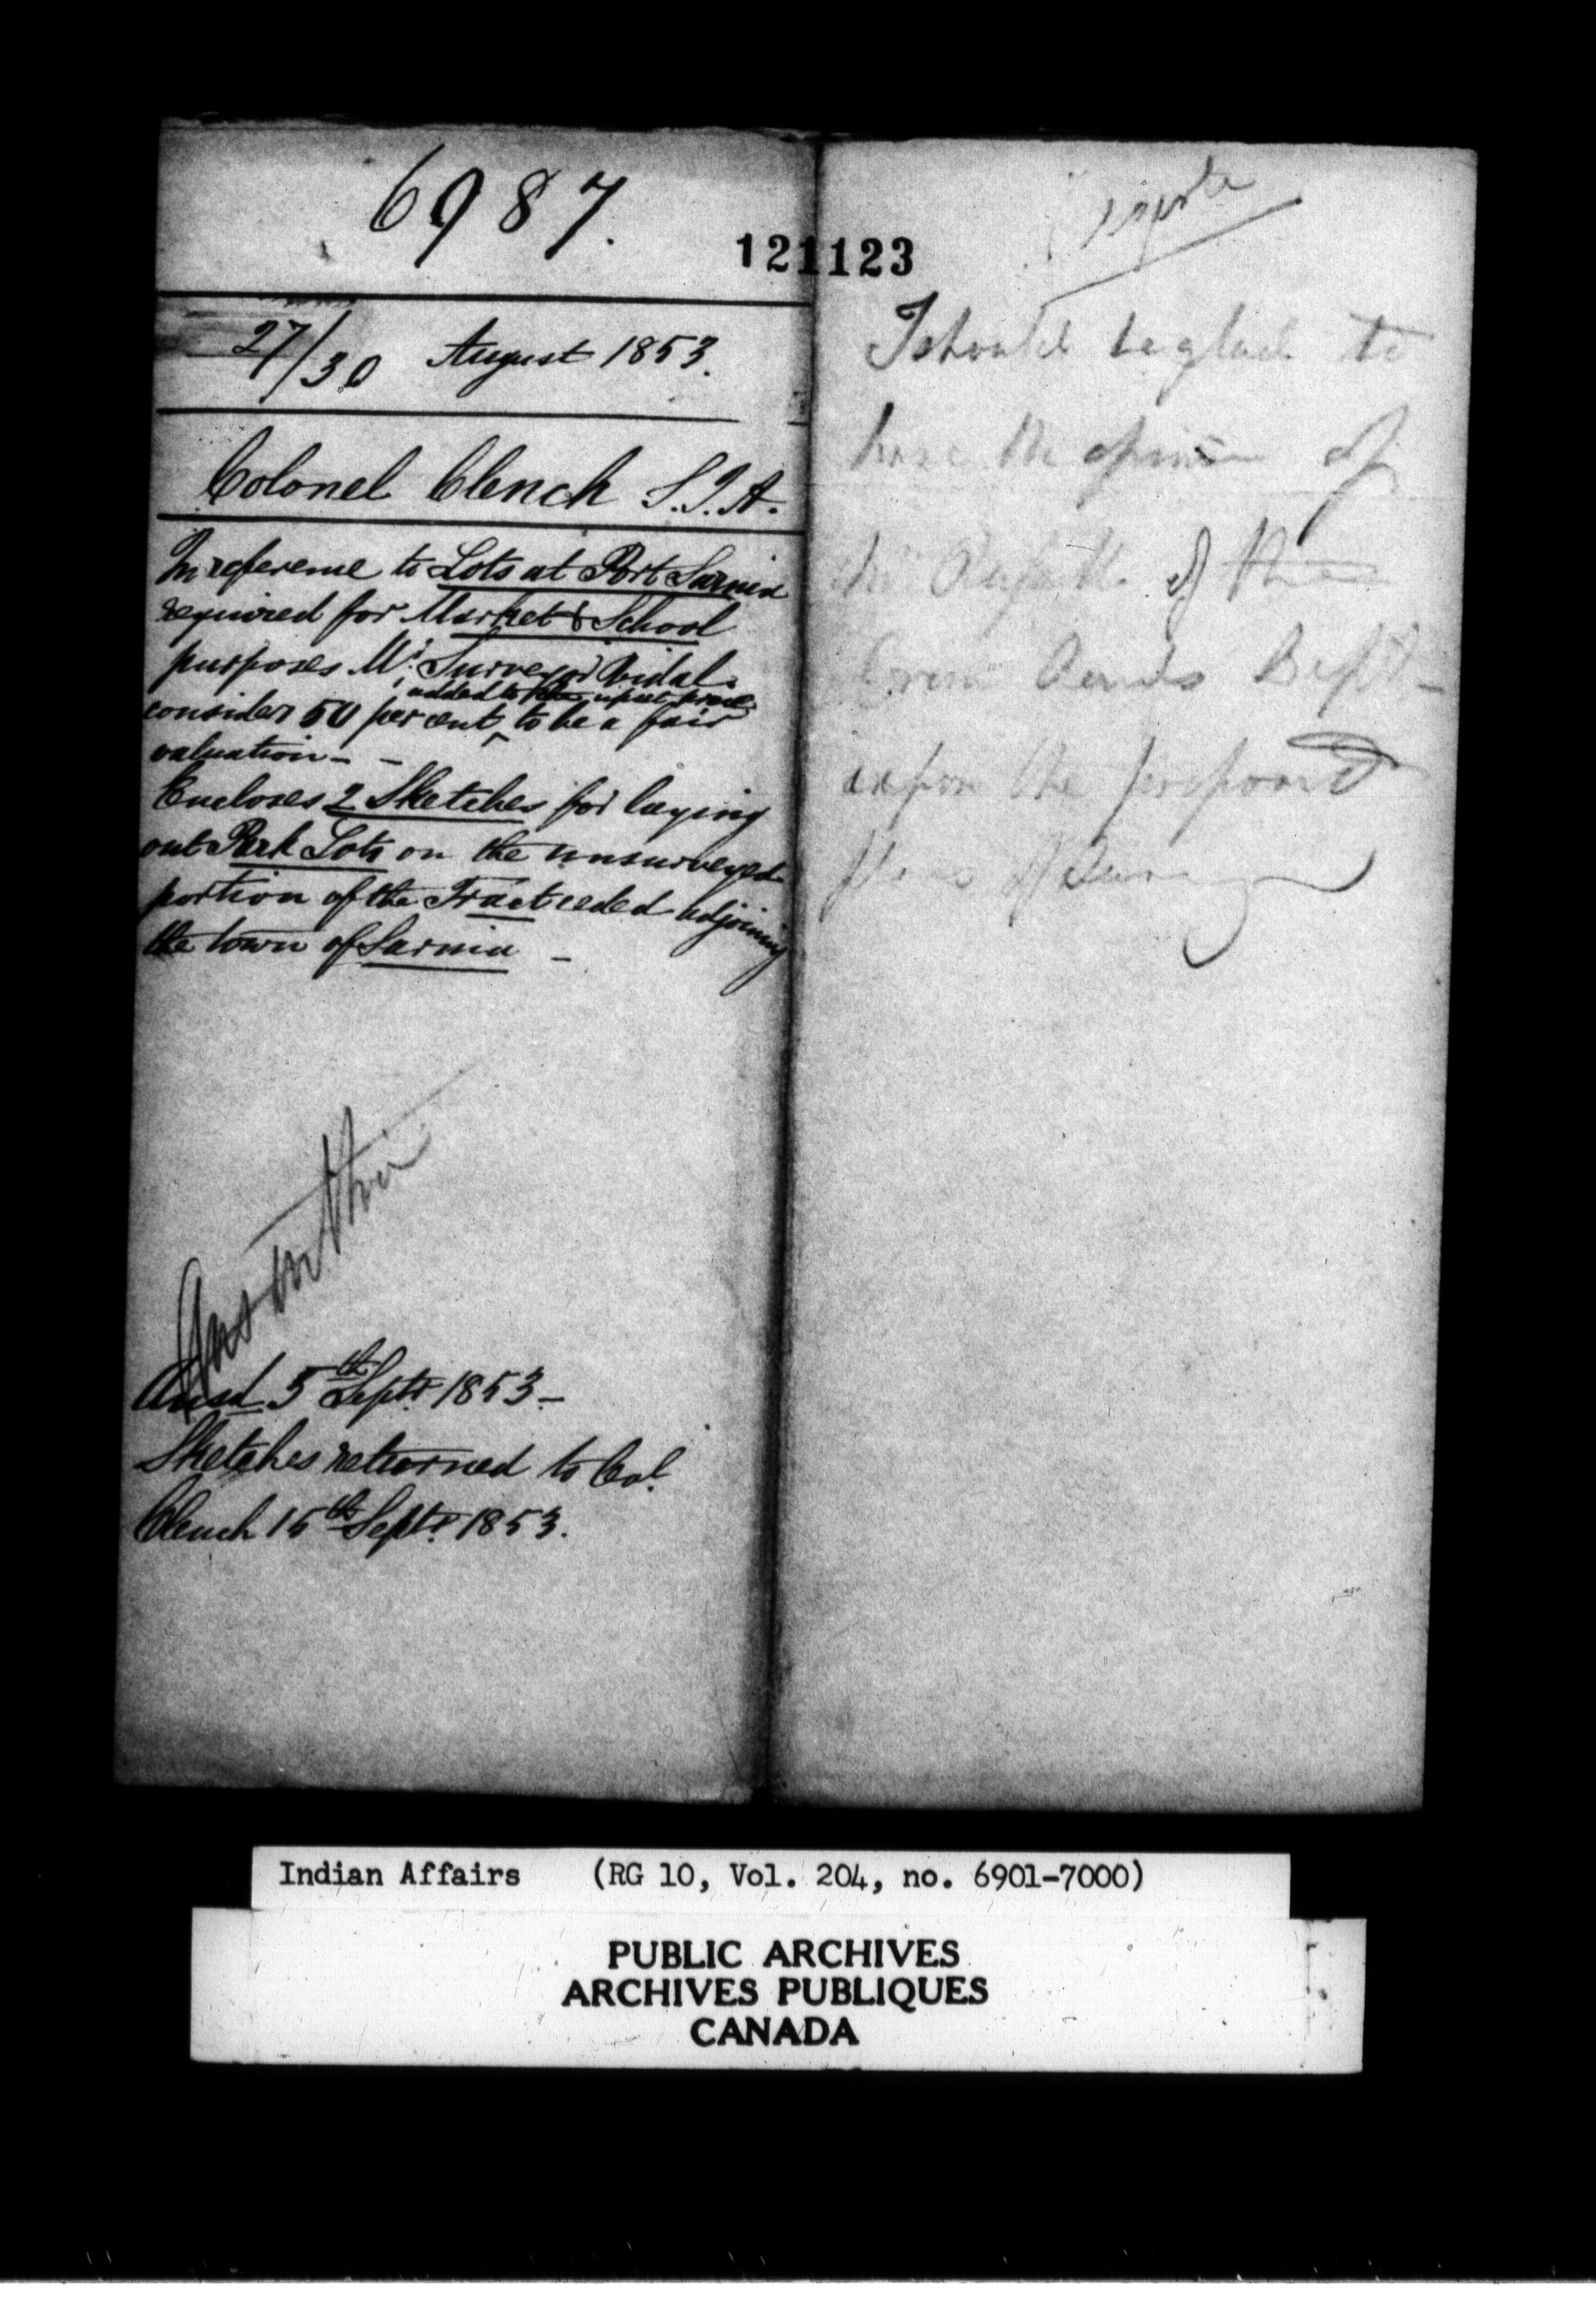 6987.
121123
27/30 August 1853.
Colonel Clench S.I.A.
In reference to Lots at Port Sarnia
required for Market & School
purposes Mr. Surveyor Vidal
added to the upset price
consider 50 per cent ^ to be a fair
valuation - -
Encloses 2 Sketches for laying
out Park Lots on the unsurveyed
portion of the Tract ceded adjoining
the town of Sarnia -
Ansd. 5th Septr. 1853 -
Sketches returned to Col.
Clench 15th Septr. 1853.
I should be glad to
have the opinion of
of the
Crown Lands Dept -
upon the proposed
plans of Survey
Indian Affairs (RG 10, Vol. 204, no. 6901-7000)
PUBLIC ARCHIVES
ARCHIVES PUBLIQUES
CANADA